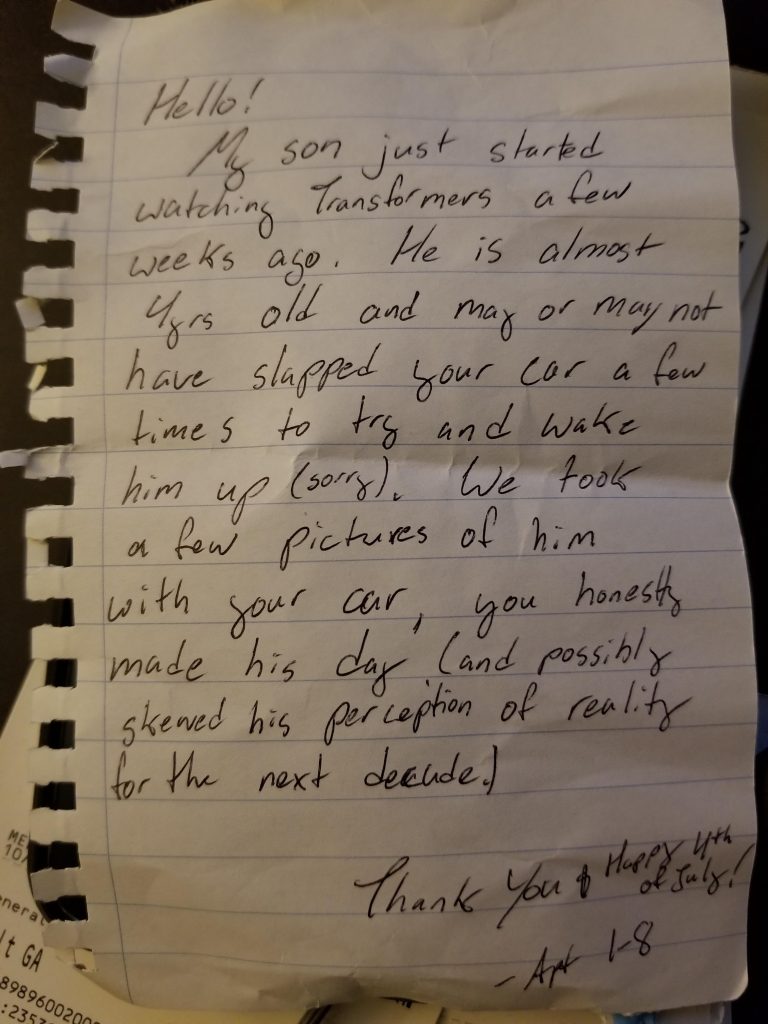 Hello!
My son just started
watching Transformers a few
weeks ago. He is almost
4yrs old and may or may not
have slapped your car a few
times to try and wake
him up (sorry). We took
a few pictures of him
with your car, you honestly
made his day (and possibly
skewed his perception of reality
for the next decade.)
Thank You & Happy 4th
of July!
- Apt 1-8
ME
10/
nera
lt GA
8989600200
:2353